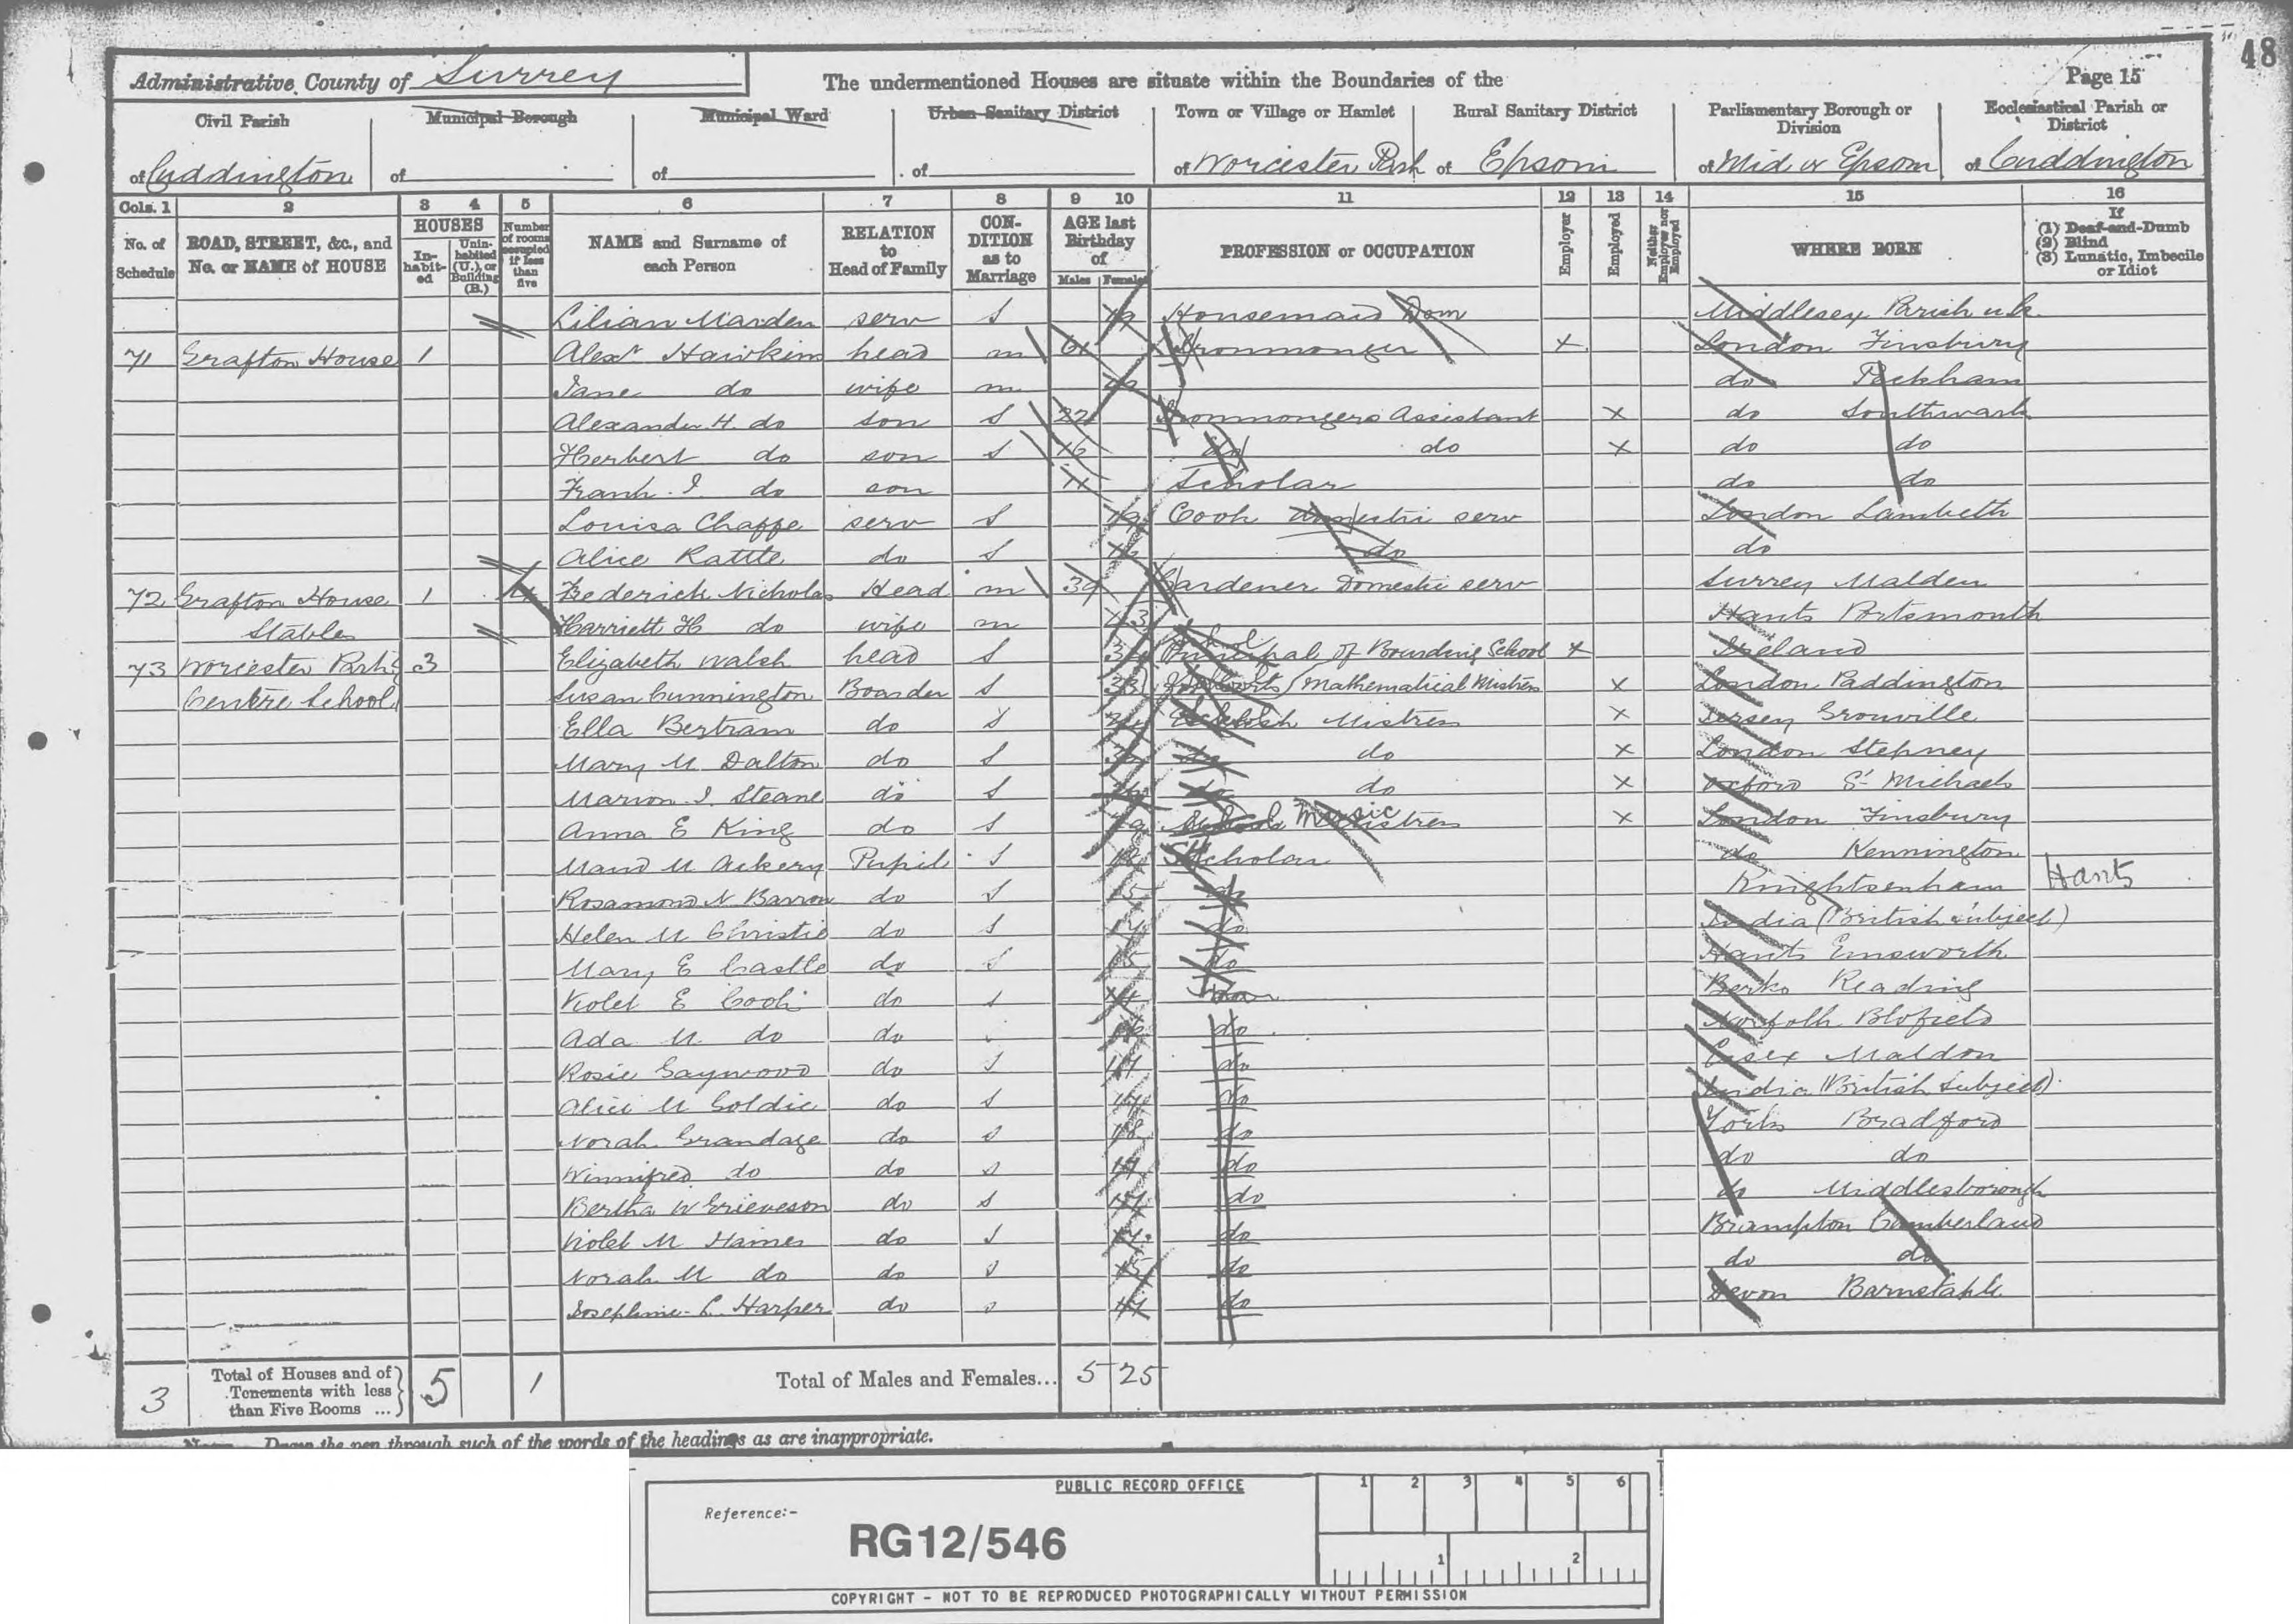 48
Administrative County of Surrey
The undermentioned Houses are situate within the Boundaries of the
Page 15
Civil Parish
Municipal Borough
Municipal Ward
Urban Sanitary District
Town or Village or Hamlet
Rural Sanitary District
Parliamentary Borough or Division
Ecclesiastical Parish or District
of Cuddington
of
of
of
of Worcester Park
of Epsom
of Mid or Epsom
of Cuddington
Cols. 1 2 3 4 5 6 7 8 9 10 11 12 13 14 15 16
No. of Schedule
ROAD, STREET, &c., and No. or NAME of HOUSE
HOUSES
In-habit-ed
Unin-habited (U.), or Building (B.)
Number of rooms occupied if less than five
NAME and Surname of each Person
RELATION to Head of Family
CON-DITION as to Marriage
AGE last Birthday of
Males Females
PROFESSION or OCCUPATION
Employer
Employed
Neither Employer nor Employed
WHERE BORN
If
(1) Deaf-and-Dumb
(2) Blind
(3) Lunatic, Imbecile or Idiot
Lilian Marden serv S 19 Housemaid Dom Middlesex Parish u.k.
71 Grafton House 1 Alexr Hawkins head m 61 Ironmonger x London Finsbury
Jane do wife m do Peckham
Alexander H. do son S 22 Ironmongers Assistant x do Southwark
Herbert do son S 16 do do x do do
Frank I. do son 11 Scholar do do
Louisa Chappe serv S 19 Cook domestic serv London Lambeth
Alice Rattle do S 16 do do
72 Grafton House 1 4 Frederick Nicholas Head m 39 Gardener Domestic serv Surrey Malden
Stables Harriett H do wife m Hants Portsmouth
73 Worcester Park 3 Elizabeth Walsh head S Principal of Boarding School x Ireland
Centre School Susan Cunnington Boarder S 33 Mathematical Mistress x London Paddington
Ella Bertram do S Mistress x Jersey Grouville
Mary M Dalton do S do do x London Stepney
Marion I. Steane do S do do x Oxford St Michaels
Anna E King do S School Music Mistress x London Finsbury
Maud M Ackery Pupil S Scholar do Kennington
Rosamond N Barron do S 15 do Knightsenham Hants
Helen M Christie do S do India (British subject)
Mary E Castle do S 15 do Hants Emsworth
Violet E Cook do S Berks Reading
Ada M do do do Norfolk Blofield
Rosie Gaywood do S do Essex Maldon
Alice M Goldie do S do India (British Subject)
Norah Grandage do S 18 do Yorks Bradford
Winnifred do do S do do do
Bertha W Grieveson do S do do Middlesborough
Violet M Haines do S do Brampton Cumberland
Norah M do do S 15 do do do
Josephine L Harper do S do Devon Barnstaple
3 Total of Houses and of Tenements with less than Five Rooms ... 5 1 Total of Males and Females... 5 25
Draw the pen through such of the words of the headings as are inappropriate.
PUBLIC RECORD OFFICE
1 2 3 4 5 6
Reference:-
RG12/546
1 2
COPYRIGHT - NOT TO BE REPRODUCED PHOTOGRAPHICALLY WITHOUT PERMISSION